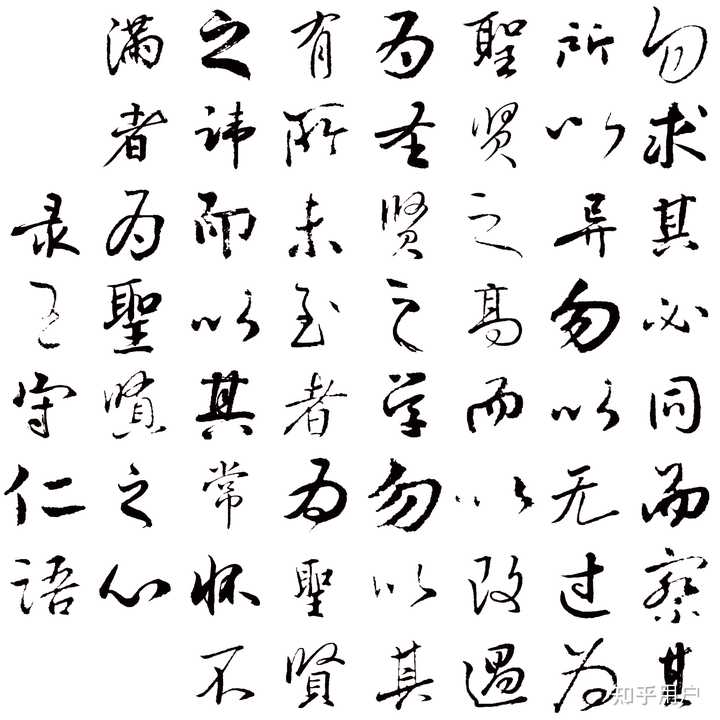 勿求其必同而察其
所以异勿以无过为
聖贤之高而以改過
为圣賢之学勿以其
有所未至者为聖賢
之讳而以其常怀不
满者为聖賢之心
录王守仁语
知乎用户